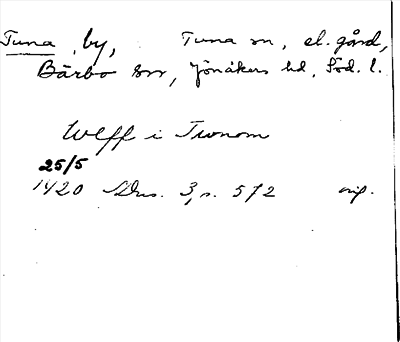 Tuna, by, Tuna sn, el. gård,
Bärbo sn, Jönåkers hd, Söd. l.
Uleff i Tronom
25/5
1420 SDns. 3, s. 572 orig.